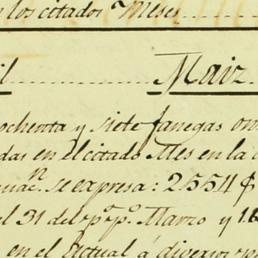 los citados Meses
il Maiz
ochenta y siete fanegas on
das en el citado Mes en la
se expresa: 2554 $
el 31 del pp. Marzo y 18
en el actual á diversos